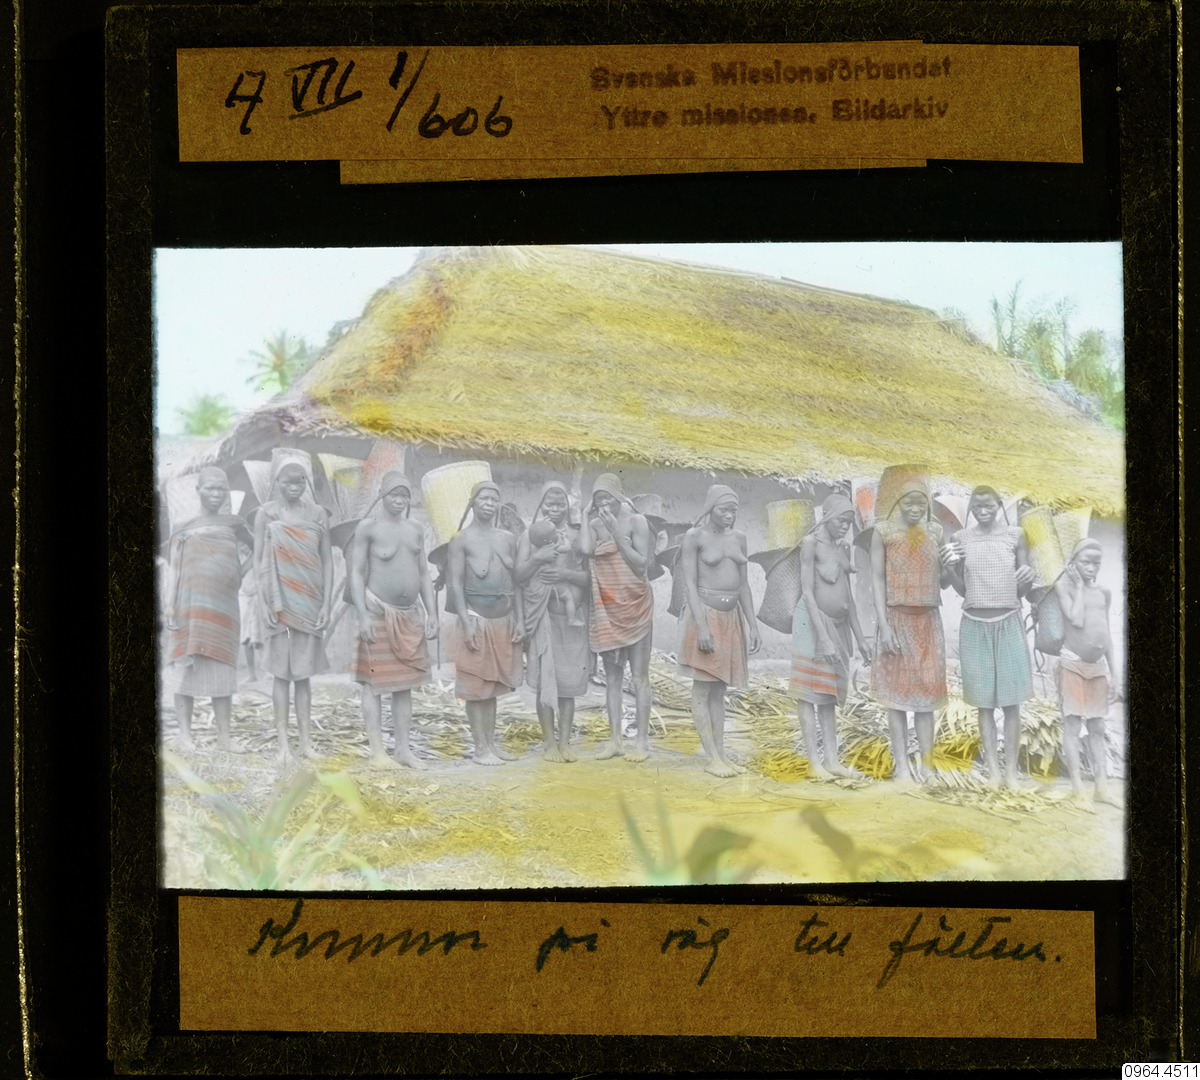 A VII 1/606
Svenska Missionsförbundet
Yttre missionen. Bildarkiv
Kvinnor på väg till fälten.
0964.4511